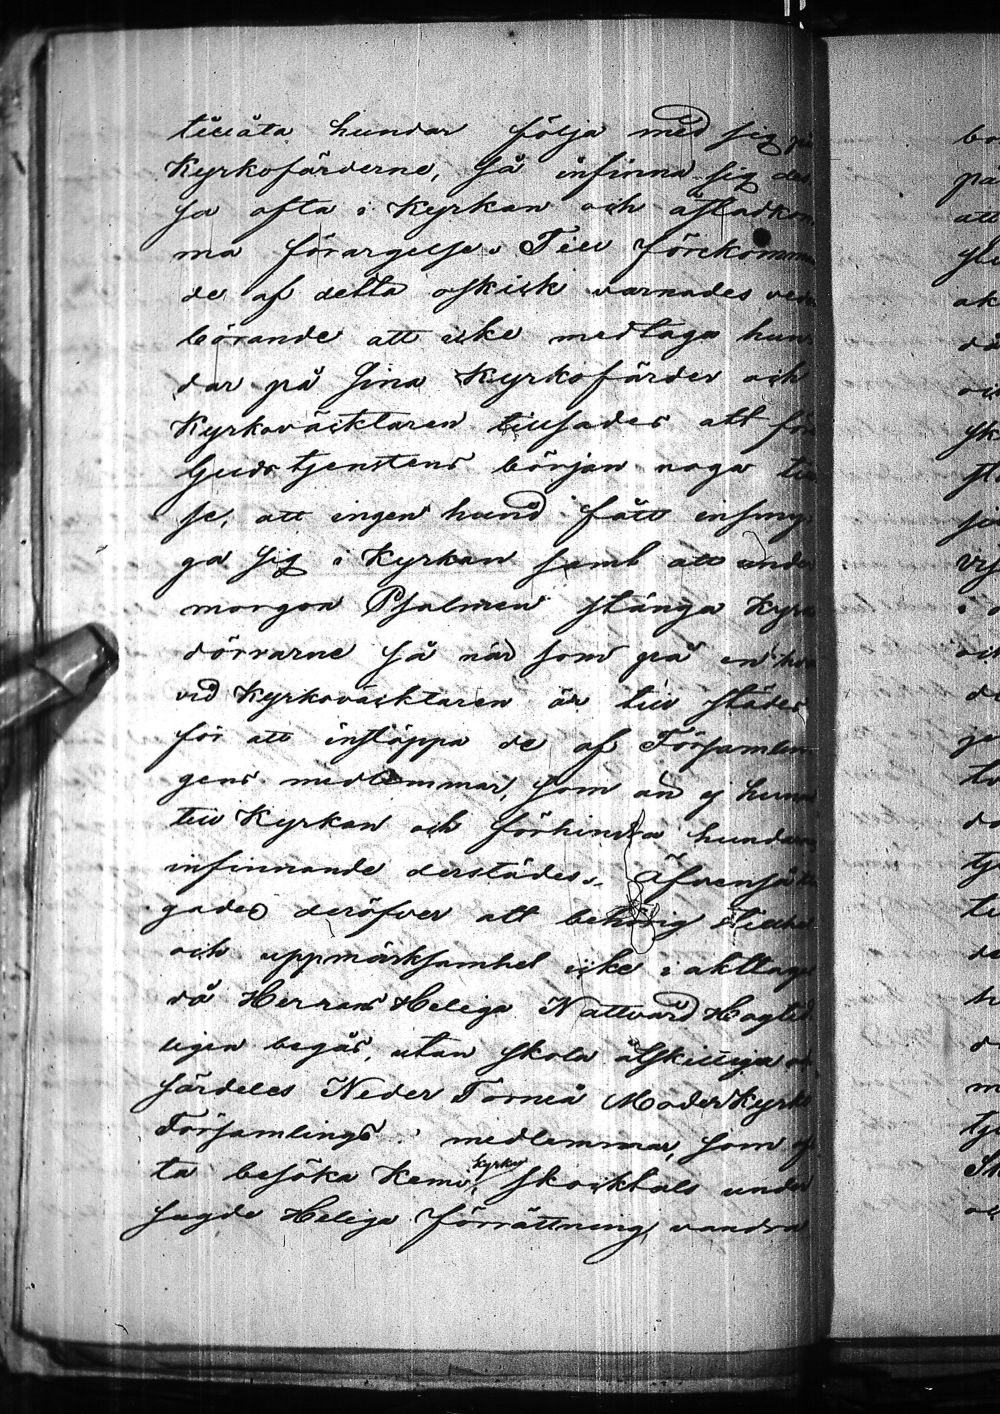 tillåta hundar följa med sig på
Kyrkofärderne, så infinna sig des
sa ofta i Kyrkan och åstadkom
ma förargelse. Till förekomman
de af detta oskick varnades veder
börande att icke medtaga hun
dar på sina Kyrkofärder och
Kyrkoväcktaren tillsades att för
Gudstjenstens början noga till
se, att ingen hund fått insmy
ga sig i Kyrkan samt att under
morgon Psalmen stänga Kyrk
dörrarne så när som på en hvar
vid Kyrkoväcktaren är till städes
för att insläppa de af Församlin
gens medlemmar, som än ej hunn
till Kyrkan och förhindra hundars
infinnande derstädes. Äfven
gades deröfver att behörig stillhet
och uppmärksamhet icke iakttages
då Herrans Heliga Nattvard Högtid
ligen begås, utan skola åtskilliga
särdeles Neder Torneå Moderkyrko
Församlings medlemmar, som of
ta besöka Kemi kyrka, skocktals under
sagde Heliga förrättning vandra
bo
på
att
ak
då
och